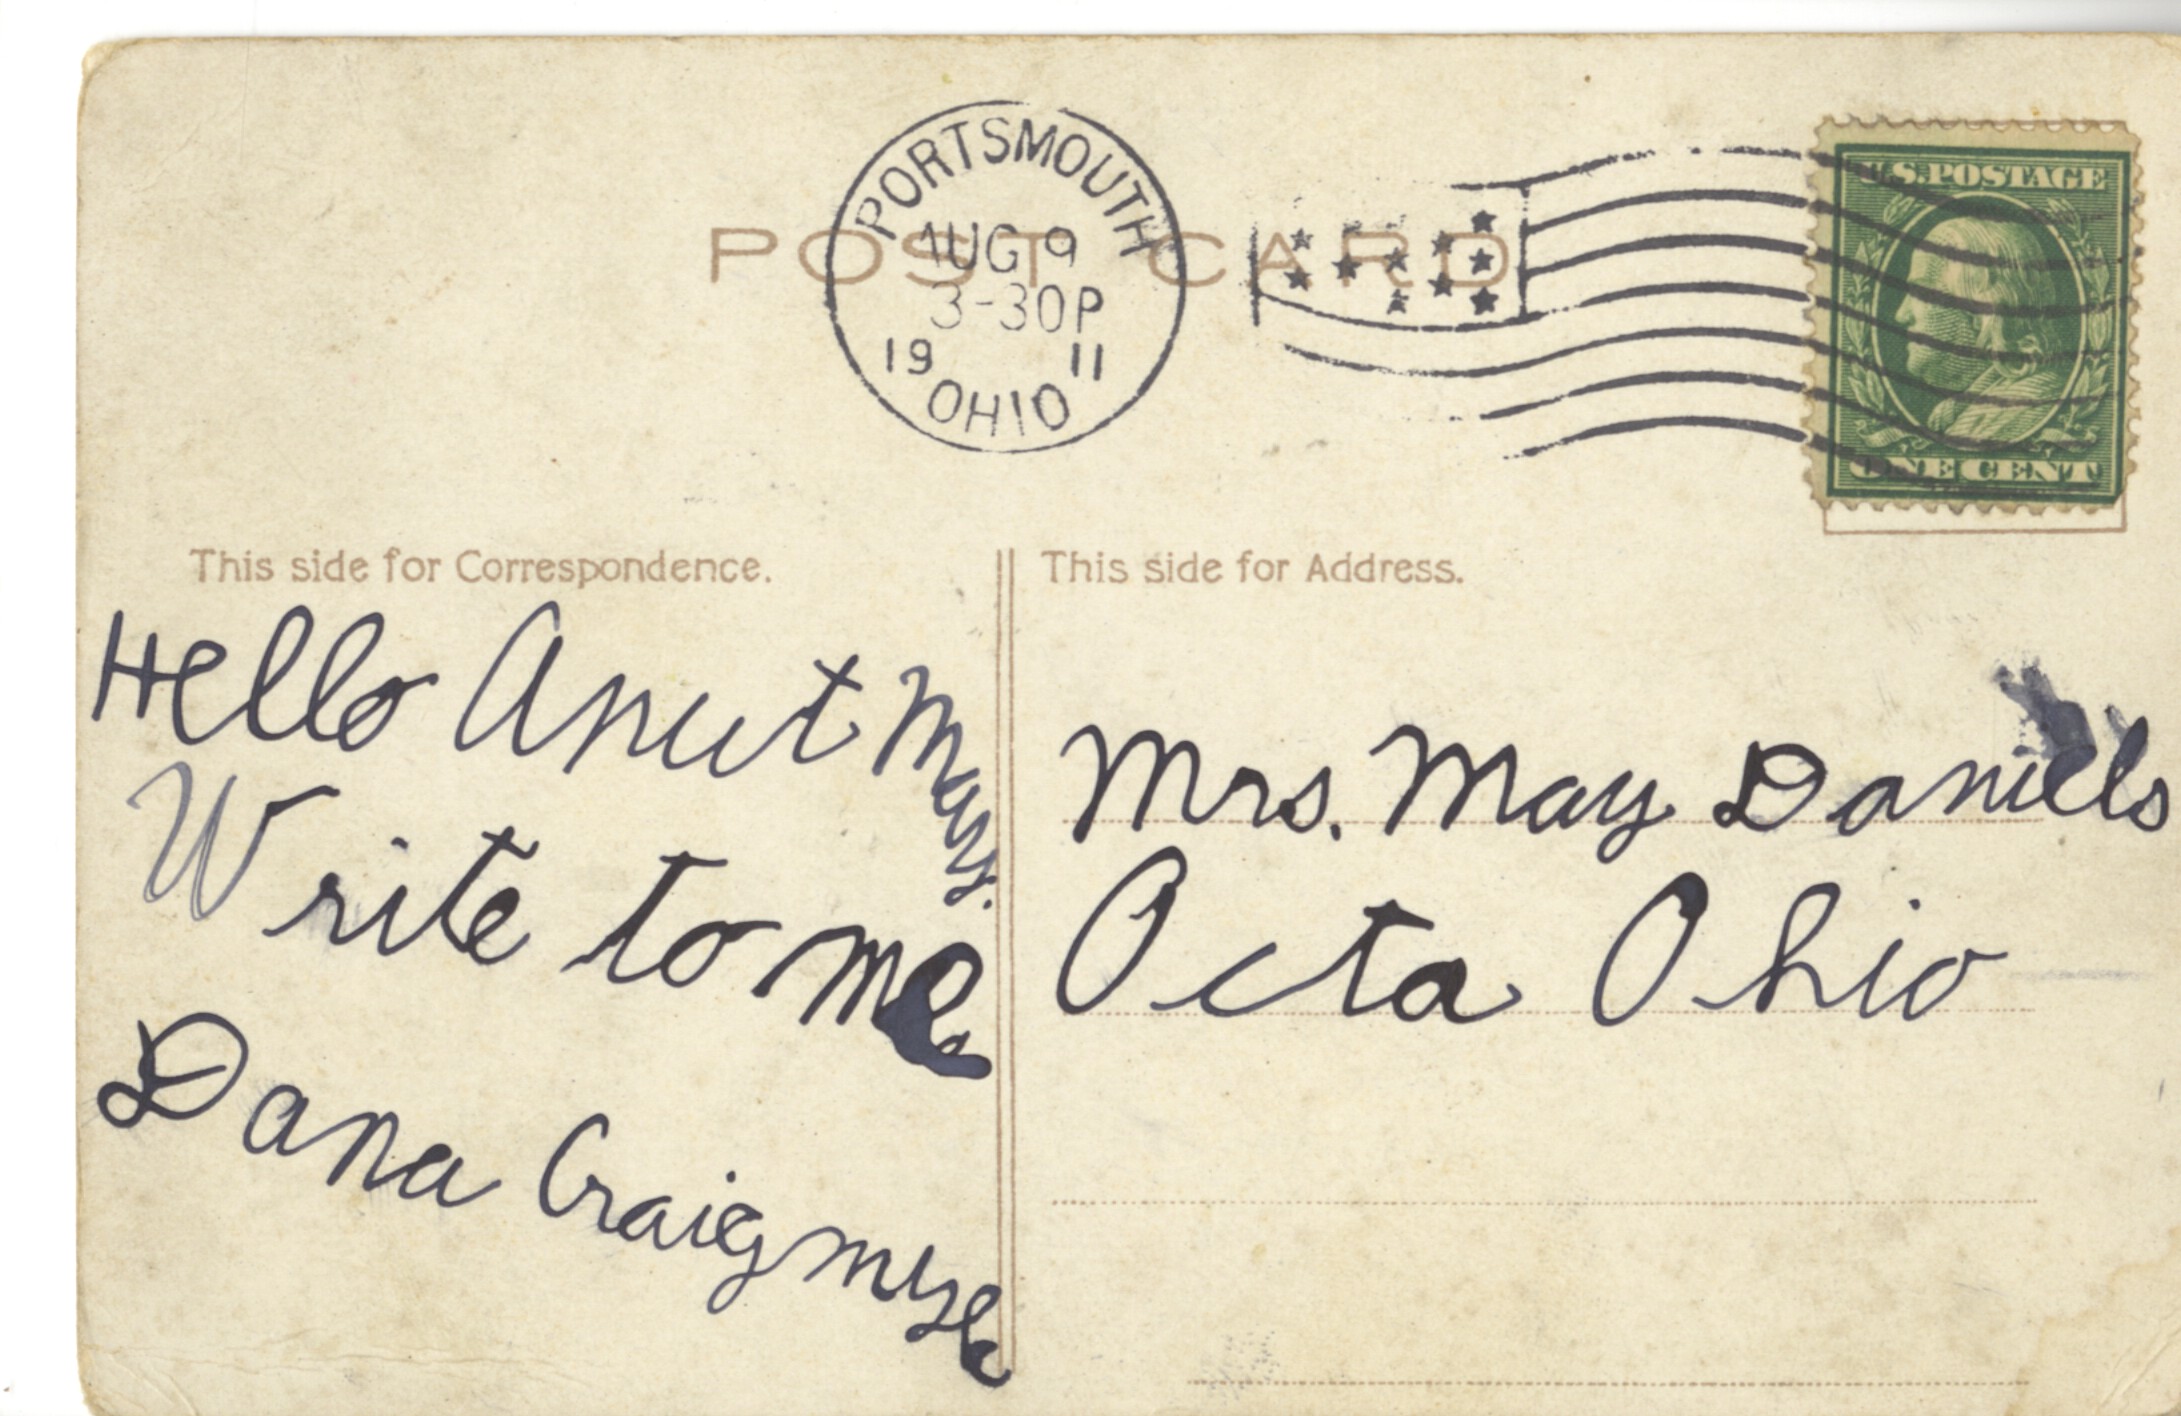 PORTSMOUTH
AUG 9
3-30P
19 11
OHIO
POST CARD
U.S. POSTAGE
ONE CENT
This side for Correspondence.
Hello Anut May.
Write to me
Dana Craigmyle
This side for Address.
Mrs. May Daniels
Octa Ohio